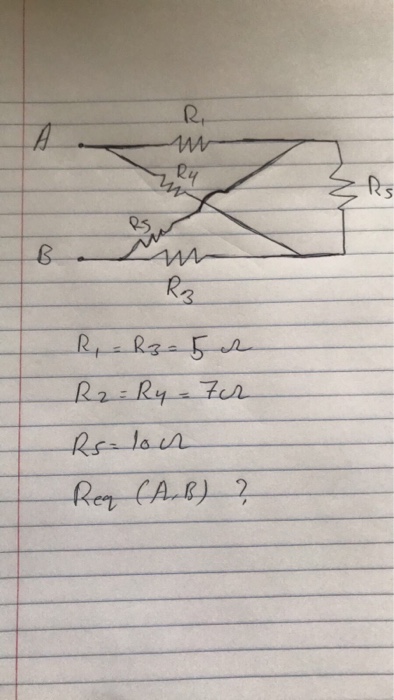 R1
A
R4
R5
R5
B
R3
R1 = R3 = 5 Ω
R2 = R4 = 7Ω
R5 = 10Ω
Req (A,B) ?